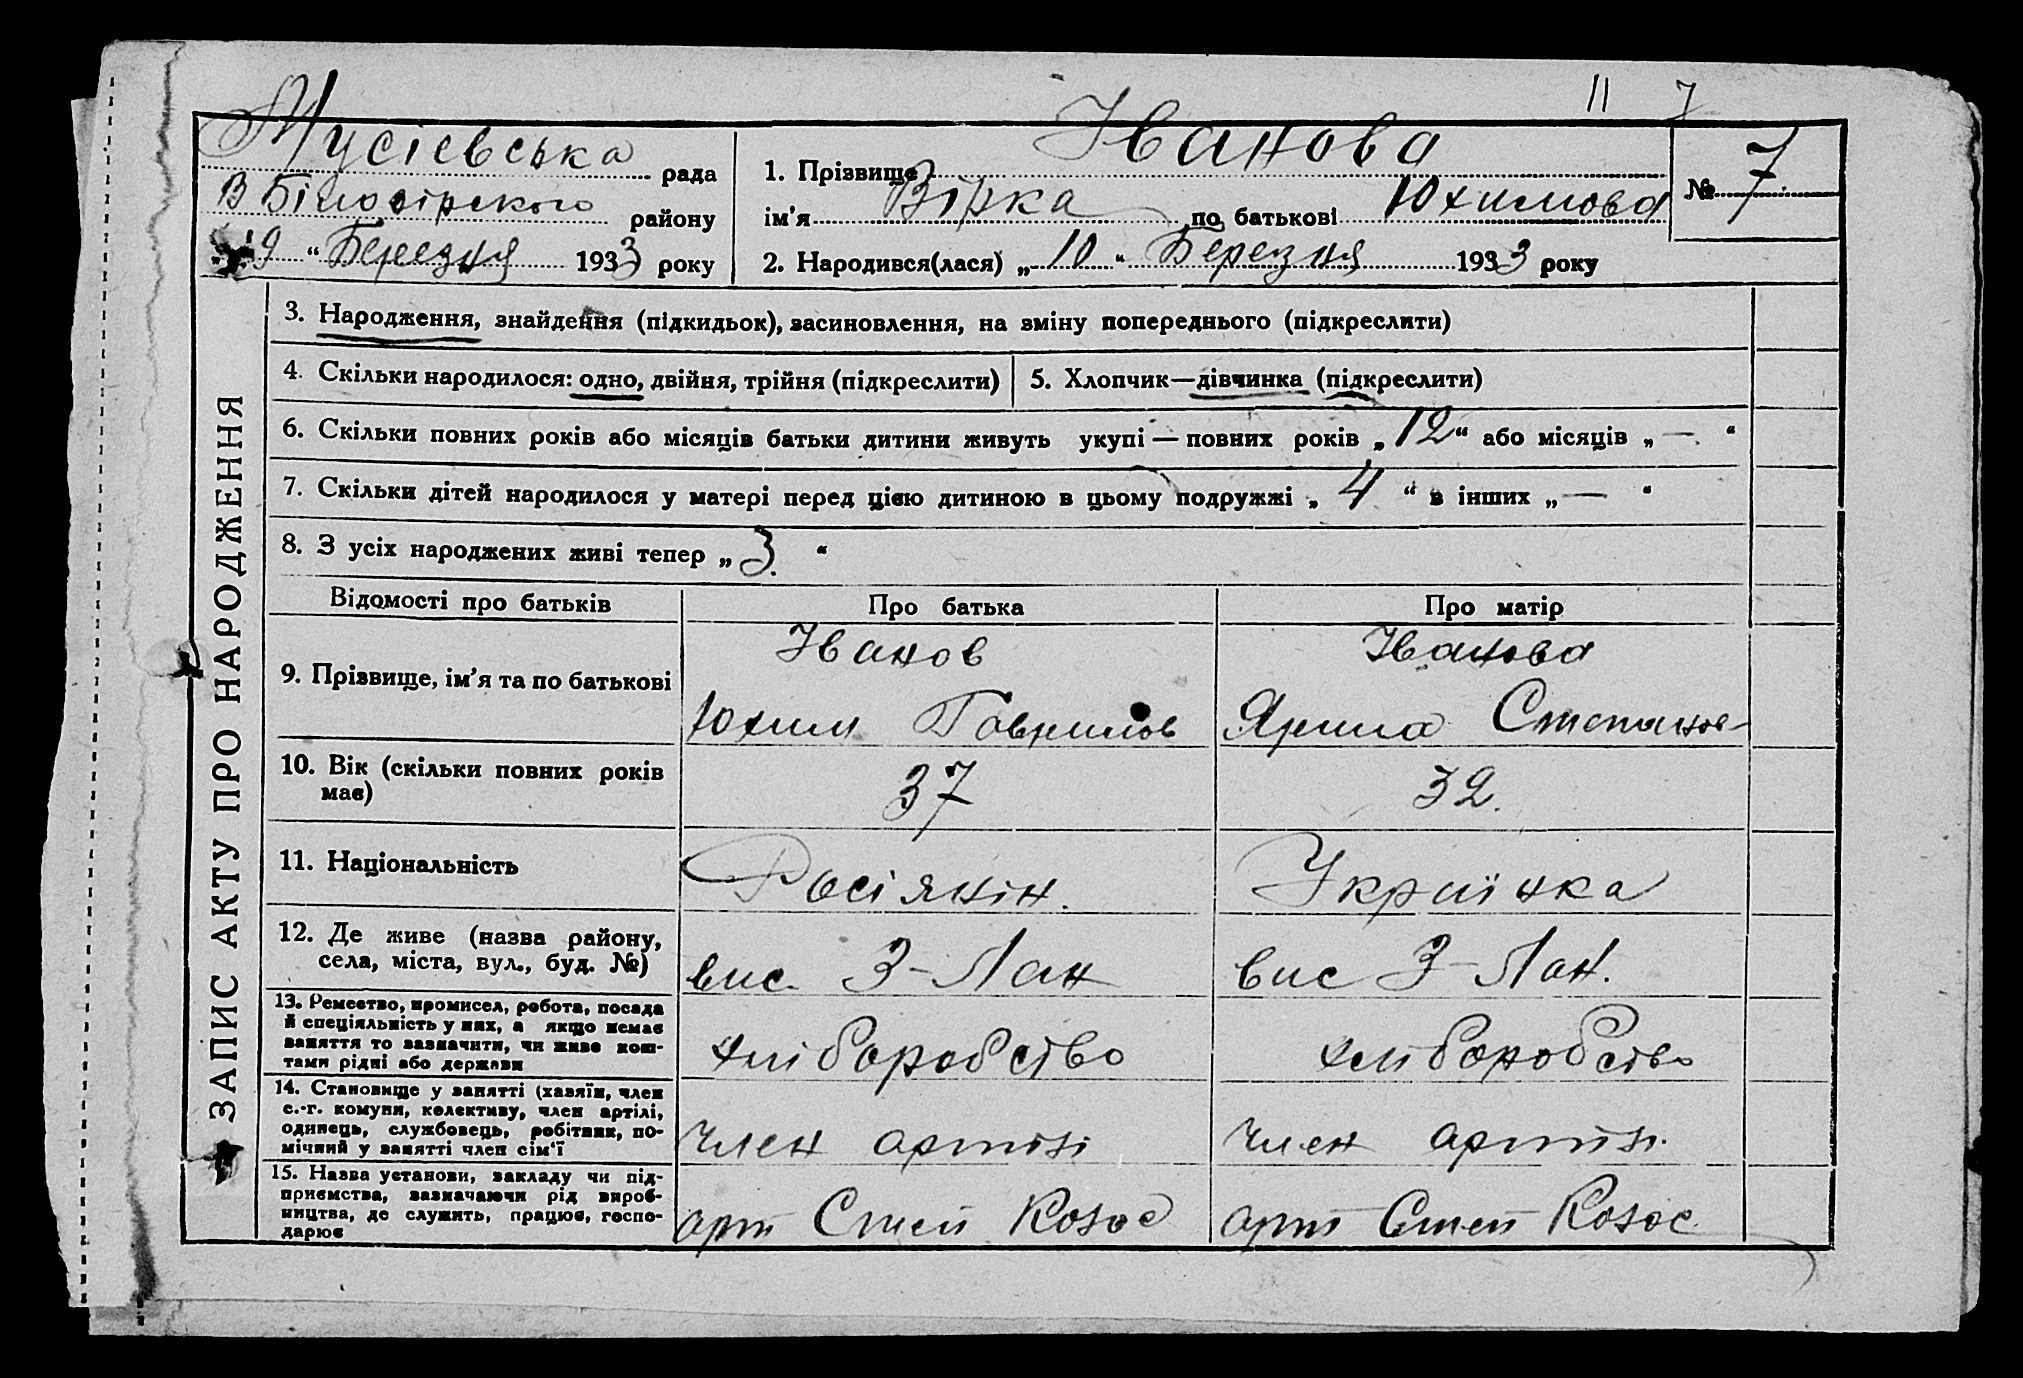 11 7
Мусієвська рада
В Білозірского району
„19“ Березня 1933 року
1. Прізвище Іванова
ім’я Вірка по батькові Юхимова
2. Народився(лася) „10“ Березня 1933 року
№ 7
ЗАПИС АКТУ ПРО НАРОДЖЕННЯ
3. Народження, знайдення (підкидьок), засиновлення, на зміну попереднього (підкреслити)
4. Скільки народилося: одно, двійня, трійня (підкреслити)
5. Хлопчик—дівчинка (підкреслити)
6. Скільки повних років або місяців батьки дитини живуть укупі — повних років „12“ або місяців „—“
7. Скільки дітей народилося у матері перед цією дитиною в цьому подружжі „4“ в інших „—“
8. З усіх народжених живі тепер „3.“
Відомості про батьків Про батька Про матір
9. Прізвище, ім’я та по батькові
Іванов
Юхим Гаврилов
Іванова
Ярина Степанов-
10. Вік (скільки повних років
має)
37
32.
11. Національність
Росіянін.
Українка
12. Де живе (назва району,
села, міста, вул., буд. №)
вис. З-Лан
вис З-Лан.
13. Ремество, промисел, робота, посада
й спеціяльність у них, а якщо немає
заняття то зазначити, чи живе кош-
тами рідні або держави
хліборобство
хліборобство
14. Становище у занятті (хазяїн, член
с.-г. комуни, колективу, член артілі,
одинець, службовець, робітник, по-
мічний у занятті член сім'ї
член артілі
член артілі.
15. Назва установи, закладу чи під-
приємства, зазначаючи рід вироб-
ництва, де служить, працює, госпо-
дарює
арт Степ Колос
арт Степ Колос